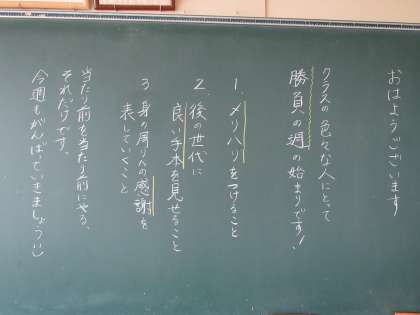 おはようございます
クラスの色々な人にとって
勝負の週の始まりです!
1. メリハリをつけること
2 後の世代に
良い手本を見せること
3 身の周りへの感謝を
表していくこと
当たり前を当たり前にやる、
それだけです。
今週もがんばっていきましょう:)